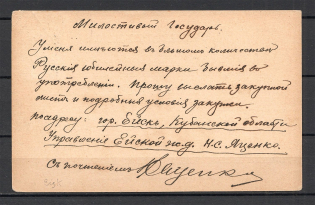 Милостивый Государь.
У меня имѣются въ большомъ количествѣ
Русскія юбилейныя марки бывшія въ
употребленіи. Прошу выслать закупочной
листъ и подробныя условія закупки.
по адресу: гор. Ейскъ, Кубанской области
Управленіе Ейской жел. д. Н. С. Яценко.
Съ почтеніемъ Яценко